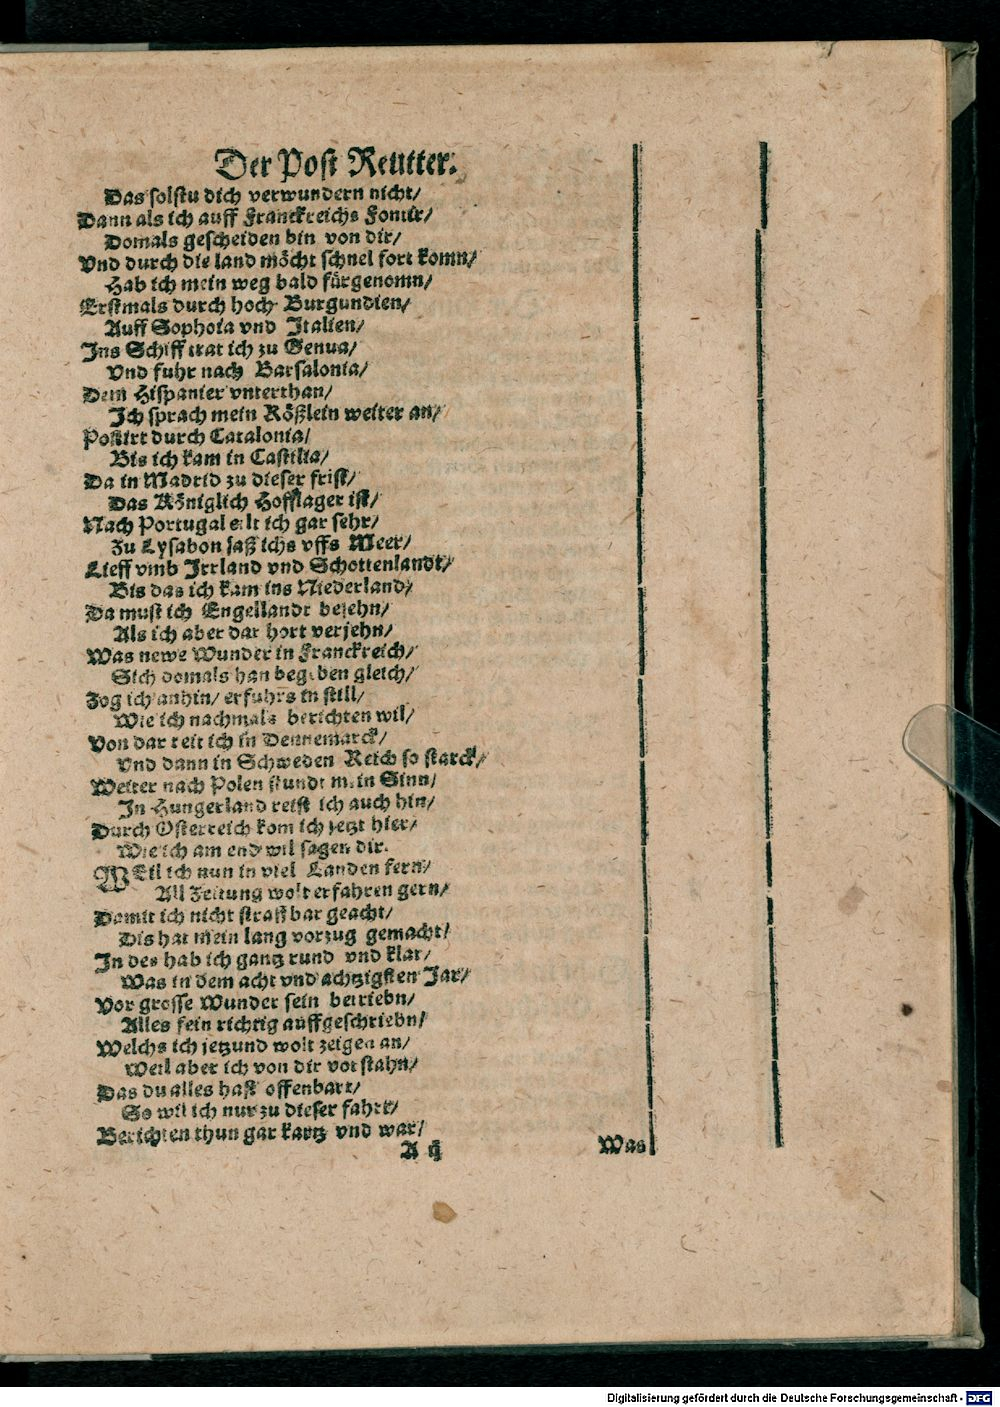 Der Post Reutter.
Das solstu dich verwundern nicht/
Dann als ich auff Franckreichs
Domals gescheiden bin von dir/
Vnd durch die land möcht schnel fort komn/
Hab ich mein weg bald fürgenomn/
Erstmals durch hoch Burgundien/
Auff Sophoia vnd Italien/
Ins Schiff trat ich zu Genua/
Vnd fuhr nach Barsalonia/
Dem Hispanier vnterthan/
Ich sprach mein Rößlein weiter an/
Postirt durch Catalonia/
Bis ich kam in Castilia/
Da in Madrid zu dieser frist/
Das Königlich Hofflager ist/
Nach Portugal eilt ich gar sehr/
Zu Lysabon saß ichs vffs Meer/
Lieff vmb Irrland vnd Schottenlandt/
Bis das ich kam ins Niederland/
Da must ich Engellandt besehn/
Als ich aber dar hort verjehn/
Was newe Wunder in Franckreich/
Sich domals han begeben gleich/
Zog ich anhin/ erfuhrs in still/
Wie ich nachmals berichten wil/
Von dar reit ich in Dennemarck/
Vnd dann in Schweden Reich so starck/
Weiter nach Polen stundt mein Sinn/
In Hungerland reist ich auch hin/
Durch Osterreich kom ich jetzt hier/
Wie ich am end wil sagen dir.
WEil ich nun in viel Landen fern/
All Zeitung wolt erfahren gern/
Damit ich nicht straffbar geacht/
Dis hat mein lang vorzug gemacht/
In des hab ich gantz rund vnd klar/
Was in dem acht vnd achtzigsten Jar/
Vor grosse Wunder sein betriebn/
Alles fein richtig auffgeschriebn/
Welchs ich jetzund wolt zeigen an/
Weil aber ich von dir vorstahn/
Das du alles hast offenbart/
So wil ich nur zu dieser fahrt/
Berichten thun gar kurtz vnd war/
A ij Was
Digitalisierung gefördert durch die Deutsche Forschungsgemeinschaft - DFG